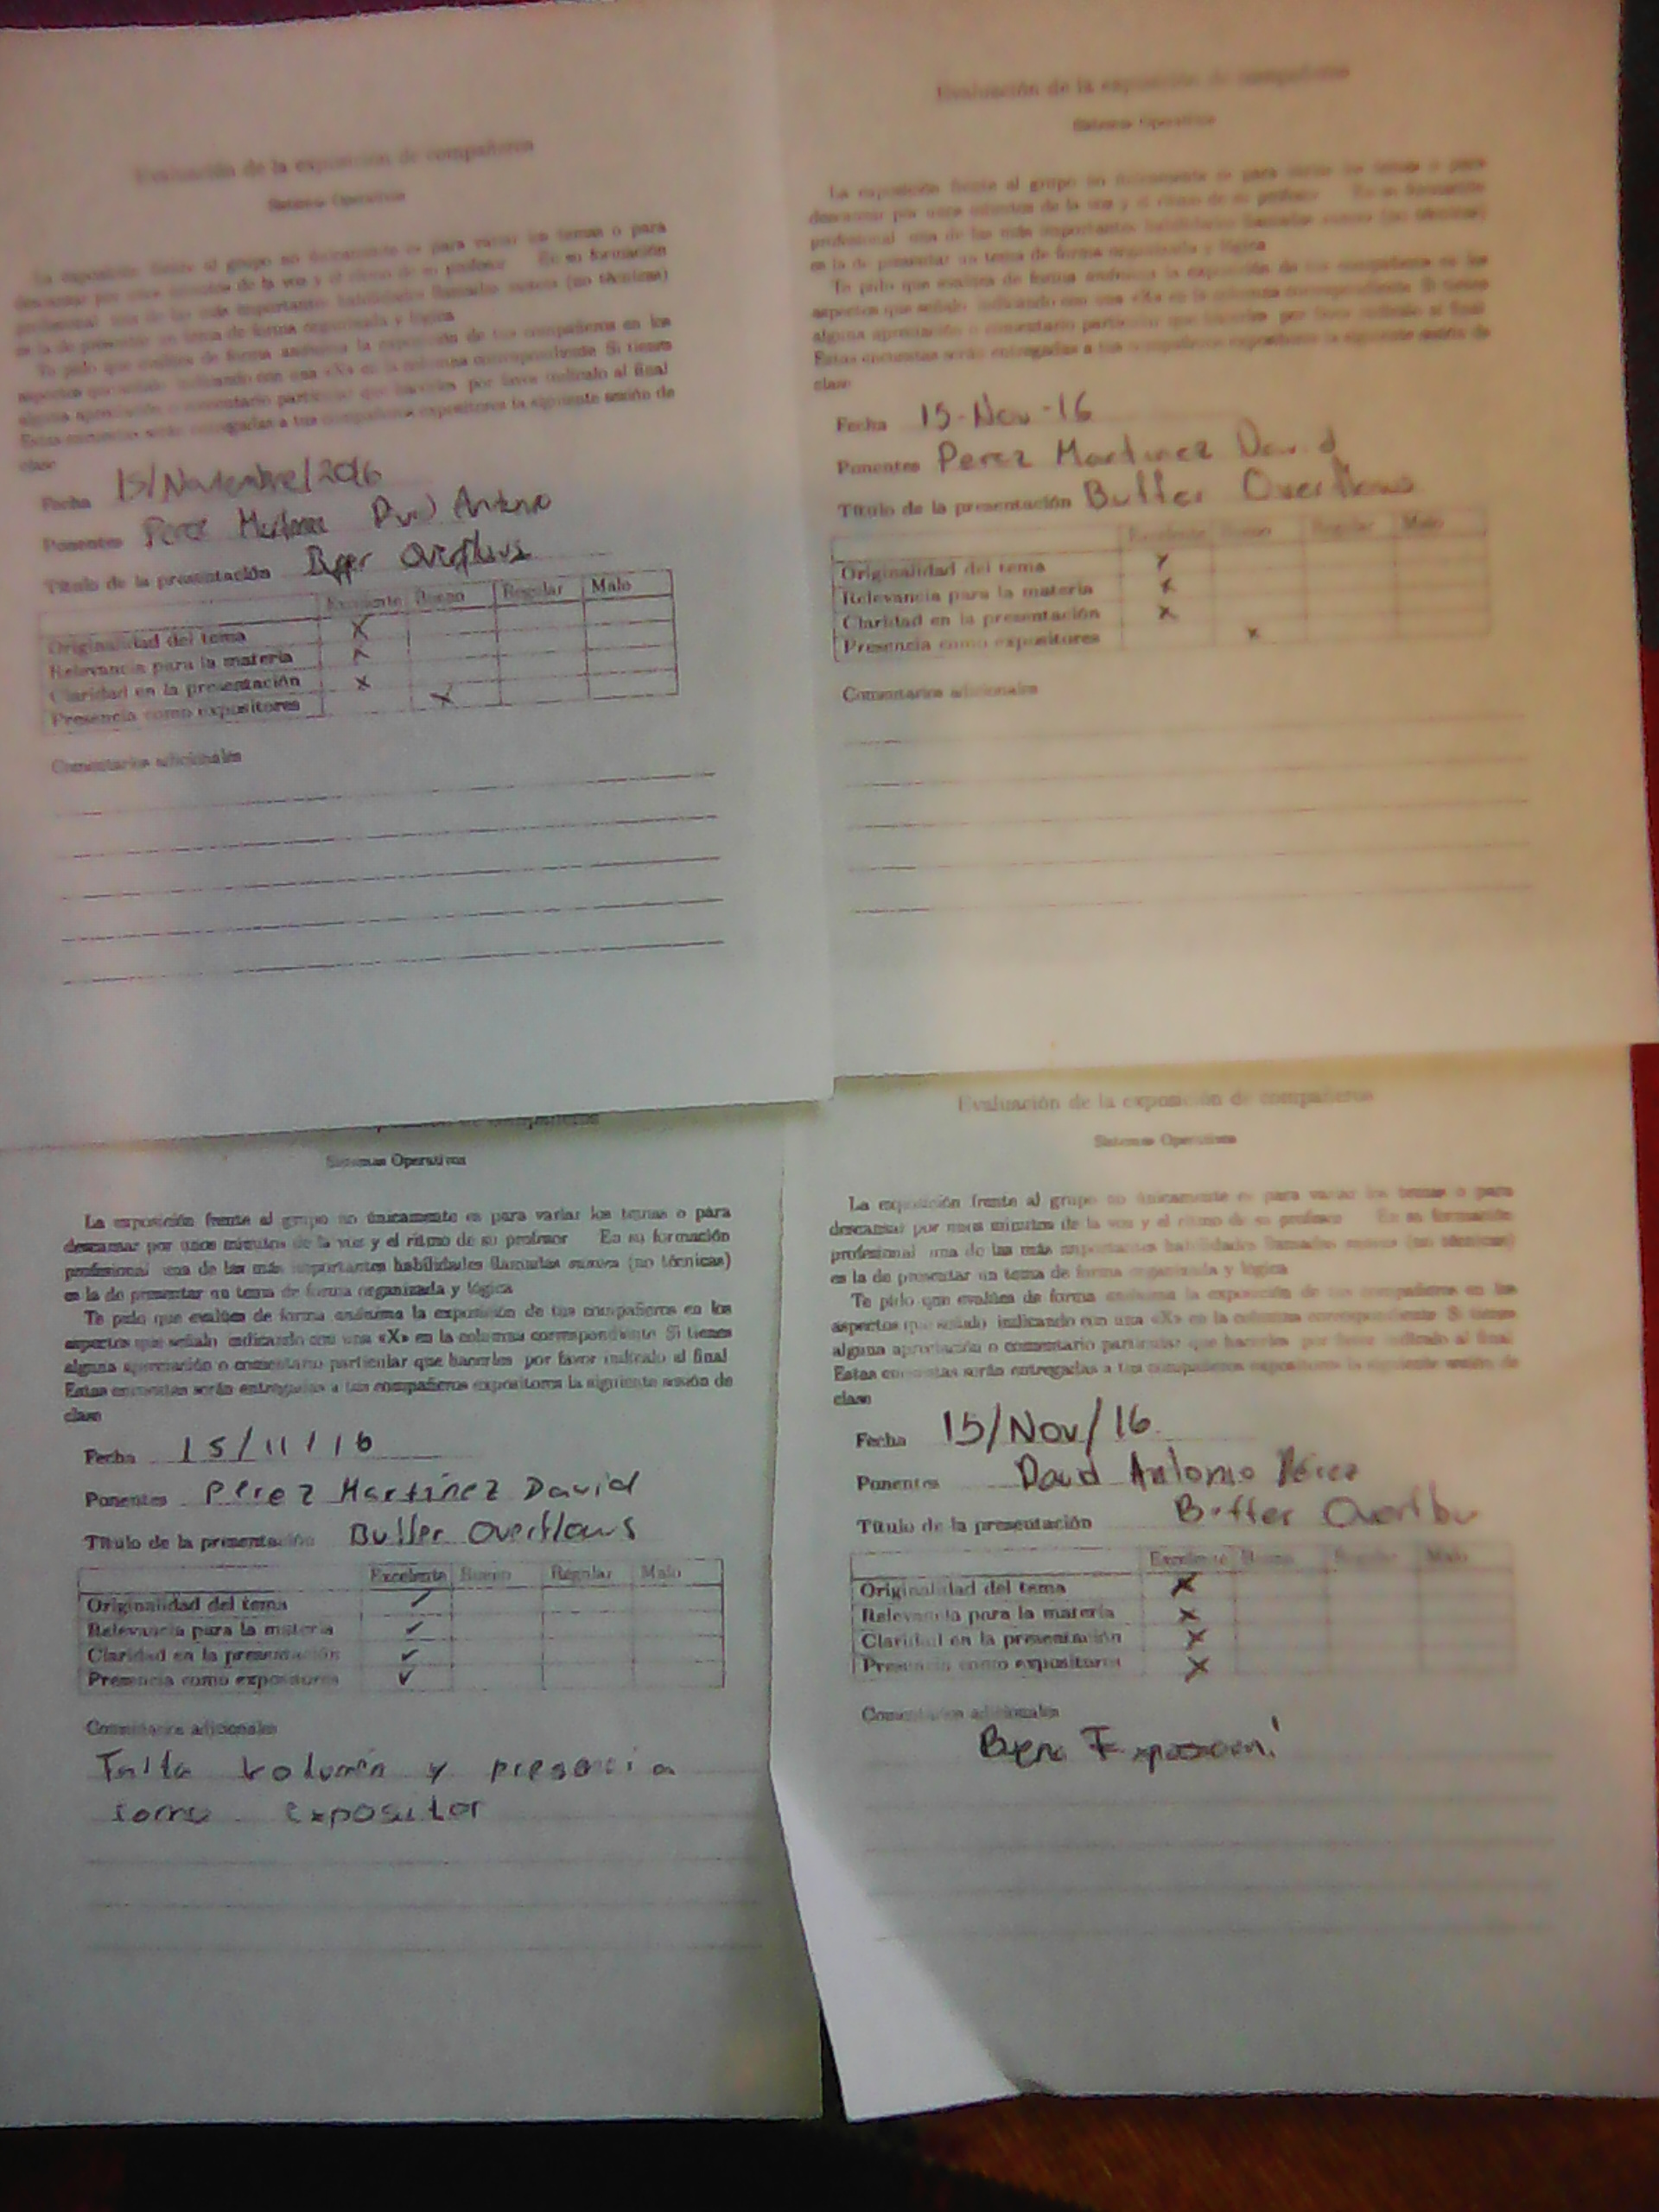 Evaluación de la exposición de compañeros
Sistemas Operativos
La exposición frente al grupo no únicamente es para variar los temas o para
descansar por unos minutos de la voz y el ritmo de su profesor En su formación
profesional una de las más importantes habilidades llamadas (no técnicas)
es la de presentar un tema de forma organizada y lógica
Te pido que evalúes de forma anónima la exposición de tus compañeros en los
aspectos que señalo indicando con una «X» en la columna correspondiente Si tienes
alguna apreciación o comentario particular que hacerles por favor indícalo al final
Estas encuestas serán entregadas a tus compañeros expositores la siguiente sesión de
clase
Fecha 15/Noviembre/2016
Ponentes Perez Martinez David Antonio
Título de la presentación Buffer Overflows
Excelente Bueno Regular Malo
Originalidad del tema X
Relevancia para la materia X
Claridad en la presentación X
Presencia como expositores X
Comentarios adicionales
Evaluación de la exposición de compañeros
Sistemas Operativos
La exposición frente al grupo no únicamente es para variar los temas o para
descansar por unos minutos de la voz y el ritmo de su profesor En su formación
profesional una de las más importantes habilidades llamadas (no técnicas)
es la de presentar un tema de forma organizada y lógica
Te pido que evalúes de forma anónima la exposición de tus compañeros en los
aspectos que señalo indicando con una «X» en la columna correspondiente Si tienes
alguna apreciación o comentario particular que hacerles por favor indícalo al final
Estas encuestas serán entregadas a tus compañeros expositores la siguiente sesión de
clase
Fecha 15-Nov-16
Ponentes Perez Martinez David
Título de la presentación Buffer Overflows
Excelente Bueno Regular Malo
Originalidad del tema X
Relevancia para la materia X
Claridad en la presentación X
Presencia como expositores X
Comentarios adicionales
de compañeros
Sistemas Operativos
La exposición frente al grupo no únicamente es para variar los temas o para
descansar por unos minutos de la voz y el ritmo de su profesor En su formación
profesional una de las más importantes habilidades llamadas (no técnicas)
es la de presentar un tema de forma organizada y lógica
Te pido que evalúes de forma anónima la exposición de tus compañeros en los
aspectos que señalo indicando con una «X» en la columna correspondiente Si tienes
alguna apreciación o comentario particular que hacerles por favor indícalo al final
Estas encuestas serán entregadas a tus compañeros expositores la siguiente sesión de
clase
Fecha 15/11/16
Ponentes Pérez Martínez David
Título de la presentación Buffer Overflows
Excelente Bueno Regular Malo
Originalidad del tema ✓
Relevancia para la materia ✓
Claridad en la presentación ✓
Presencia como expositores ✓
Comentarios adicionales
Falta volumen y presencia
como expositor
Evaluación de la exposición de compañeros
Sistemas Operativos
La exposición frente al grupo no únicamente es para variar los temas o para
descansar por unos minutos de la voz y el ritmo de su profesor En su formación
profesional una de las más importantes habilidades llamadas (no técnicas)
es la de presentar un tema de forma organizada y lógica
Te pido que evalúes de forma anónima la exposición de tus compañeros en los
aspectos que señalo indicando con una «X» en la columna correspondiente Si tienes
alguna apreciación o comentario particular que hacerles por favor indícalo al final
Estas encuestas serán entregadas a tus compañeros expositores la siguiente sesión de
clase
Fecha 15/Nov/16
Ponentes David Antonio Pérez
Título de la presentación Buffer Overflow
Excelente Bueno Regular Malo
Originalidad del tema X
Relevancia para la materia X
Claridad en la presentación X
Presencia como expositores X
Comentarios adicionales